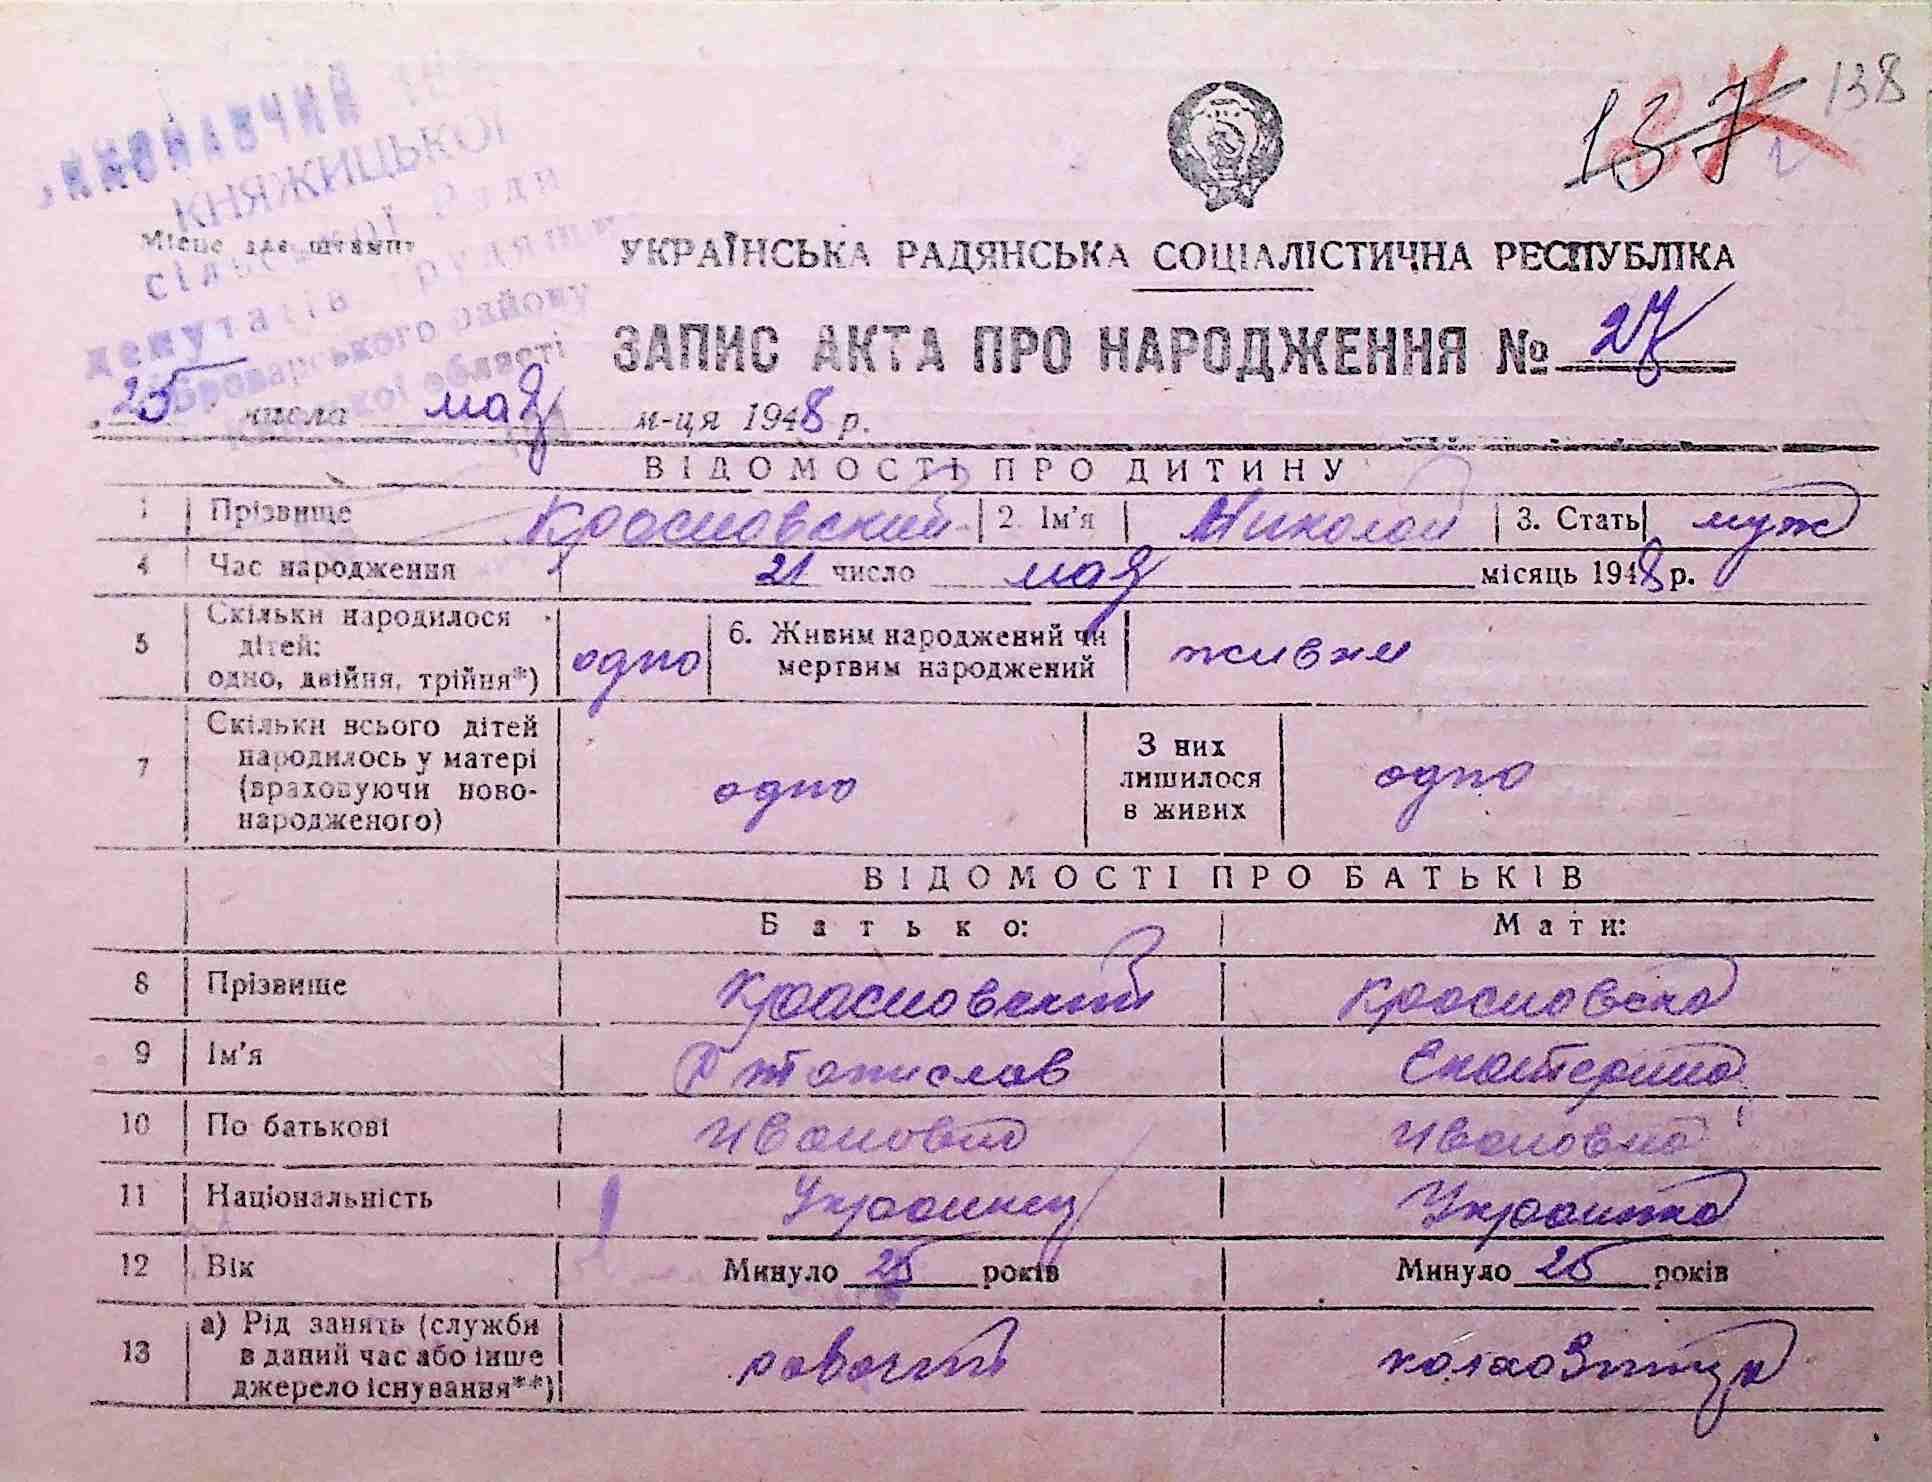 138
137
ВИКОНАВЧИЙ
КНЯЖИЦЬКОЇ
сільської Ради
депутатів трудящих
Броварського району
Київської області
Місце для штампу
УКРАЇНСЬКА РАДЯНСЬКА СОЦІАЛІСТИЧНА РЕСПУБЛІКА
ЗАПИС АКТА ПРО НАРОДЖЕННЯ № 27
„25 числа мая м-ця 1948 р.
ВІДОМОСТІ ПРО ДИТИНУ
1 Прізвище Красновский 2. Ім'я Николай 3. Стать муж
4 Час народження 21 число мая місяць 1948 р.
5 Скільки народилося дітей: одно, двійня, трійня*) одно 6. Живим народжений чи мертвим народжений живим
7 Скільки всього дітей народилось у матері (враховуючи ново-народженого) одно З них лишилося в живих одно
ВІДОМОСТІ ПРО БАТЬКІВ
Батько: Мати:
8 Прізвище Красновский Красновска
9 Ім'я Станислав Екатерина
10 По батькові Ивановна
11 Національність Украинец Украинка
12 Вік Минуло 25 років Минуло 25 років
13 а) Рід занять (служби в даний час або інше джерело існування**) рабочий колхозница